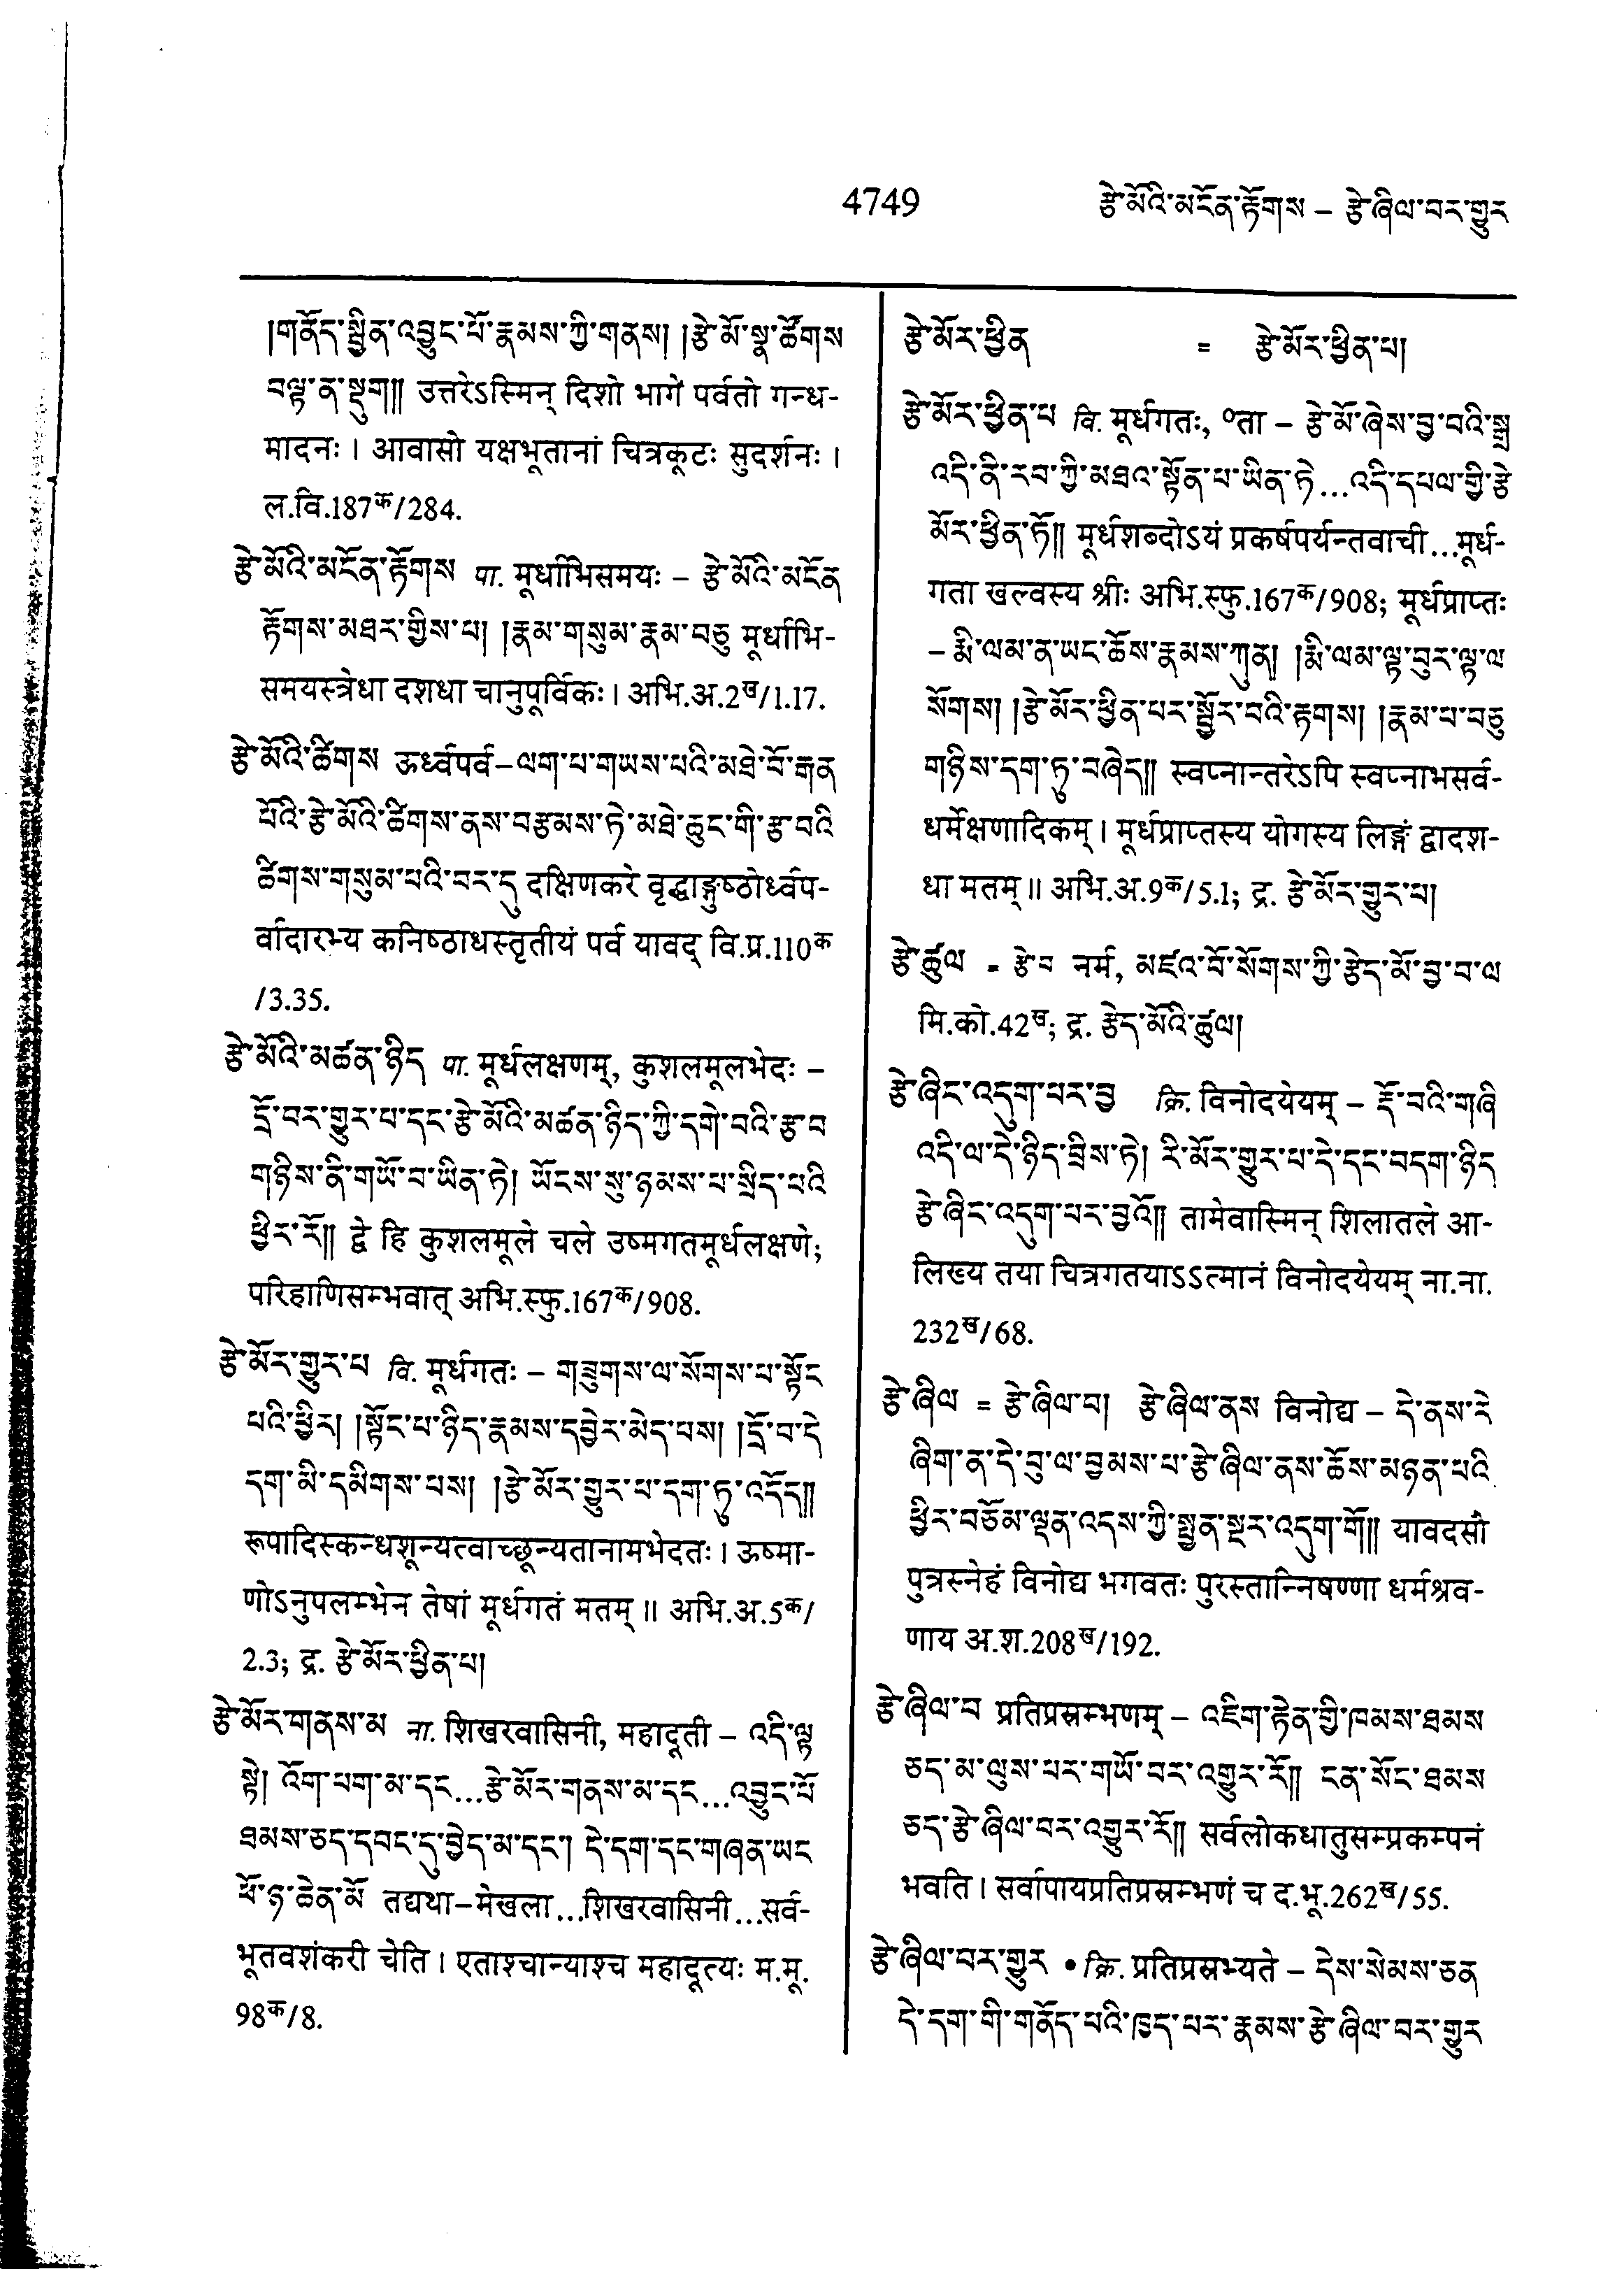 4749
རྩེ་མོའི་མངོན་རྟོགས – རྩེ་ཞིལ་བར་གྱུར
།གནོད་སྦྱིན་འབྱུང་པོ་རྣམས་ཀྱི་གནས། །རྩེ་མོ་སྣ་ཚོགས
བལྟ་ན་སྡུག།། उत्तरेऽस्मिन् दिशो भागे पर्वतो गन्ध-
मादनः । आवासो यक्षभूतानां चित्रकूटः सुदर्शनः ।
ल.वि.187क/284.
རྩེ་མོའི་མངོན་རྟོགས पा. मूर्धाभिसमयः – རྩེ་མོའི་མངོན
རྟོགས་མཐར་གྱིས་པ། །རྣམ་གསུམ་རྣམ་བཅུ मूर्धाभि-
समयस्त्रेधा दशधा चानुपूर्विकः। अभि.अ.2ख/1.17.
རྩེ་མོའི་ཚིགས ऊर्ध्वपर्व–ལག་པ་གཡས་པའི་མཐེ་བོ་རྒན
པོའི་རྩེ་མོའི་ཚིགས་ནས་བརྩམས་ཏེ་མཐེ་ཆུང་གི་རྩ་བའི
ཚིགས་གསུམ་པའི་བར་དུ दक्षिणकरे वृद्धाङ्गुष्ठोर्ध्वप-
र्वादारभ्य कनिष्ठाधस्तृतीयं पर्व यावद् वि.प्र.110क
/3.35.
རྩེ་མོའི་མཚན་ཉིད पा. मूर्धलक्षणम्, कुशलमूलभेदः –
དྲོ་བར་གྱུར་པ་དང་རྩེ་མོའི་མཚན་ཉིད་ཀྱི་དགེ་བའི་རྩ་བ
གཉིས་ནི་གཡོ་བ་ཡིན་ཏེ། ཡོངས་སུ་ཉམས་པ་སྲིད་པའི
ཕྱིར་རོ།། द्वे हि कुशलमूले चले उष्मगतमूर्धलक्षणे;
परिहाणिसम्भवात् अभि.स्फु.167क/908.
རྩེ་མོར་གྱུར་པ वि. मूर्धगतः – གཟུགས་ལ་སོགས་པ་སྟོང
པའི་ཕྱིར། །སྟོང་པ་ཉིད་རྣམས་དབྱེར་མེད་པས། །དྲོ་བ་དེ
དག་མི་དམིགས་པས། །རྩེ་མོར་གྱུར་པ་དག་ཏུ་འདོད།།
रूपादिस्कन्धशून्यत्वाच्छून्यतानामभेदतः। ऊष्मा-
णोऽनुपलम्भेन तेषां मूर्धगतं मतम् ॥ अभि.अ.5क/
2.3; द्र. རྩེ་མོར་ཕྱིན་པ།
རྩེ་མོར་གནས་མ ना. शिखरवासिनी, महादूती – འདི་ལྟ
སྟེ། འོག་པག་མ་དང...རྩེ་མོར་གནས་མ་དང...འབྱུང་པོ
ཐམས་ཅད་དབང་དུ་བྱེད་མ་དང༌། དེ་དག་དང་གཞན་ཡང
ཕོ་ཉ་ཆེན་མོ तद्यथा–मेखला...शिखरवासिनी...सर्व-
भूतवशंकरी चेति। एताश्चान्याश्च महादूत्यः म.मू.
98क/8.
རྩེ་མོར་ཕྱིན = རྩེ་མོར་ཕྱིན་པ།
རྩེ་མོར་ཕྱིན་པ वि. मूर्धगतः, ०ता – རྩེ་མོ་ཞེས་བྱ་བའི་སྒྲ
འདི་ནི་རབ་ཀྱི་མཐའ་སྟོན་པ་ཡིན་ཏེ...འདི་དཔལ་གྱི་རྩེ
མོར་ཕྱིན་ཏོ།། मूर्धशब्दोऽयं प्रकर्षपर्यन्तवाची...मूर्ध-
गता खल्वस्य श्रीः अभि.स्फु.167क/908; मूर्धप्राप्तः
– རྨི་ལམ་ན་ཡང་ཆོས་རྣམས་ཀུན། །རྨི་ལམ་ལྟ་བུར་ལྟ་ལ
སོགས། །རྩེ་མོར་ཕྱིན་པར་སྦྱོར་བའི་རྟགས། །རྣམ་པ་བཅུ
གཉིས་དག་ཏུ་བཞེད།། स्वप्नान्तरेऽपि स्वप्नाभसर्व-
धर्मेक्षणादिकम्। मूर्धप्राप्तस्य योगस्य लिङ्गं द्वादश-
धा मतम् ॥ अभि.अ.9क/5.1; द्र. རྩེ་མོར་གྱུར་པ།
རྩེ་ཚུལ = རྩེ་བ नर्म, མཛའ་བོ་སོགས་ཀྱི་རྩེད་མོ་བྱ་བ་ལ
मि.को.42ख; द्र. རྩེད་མོའི་ཚུལ།
རྩེ་ཞིང་འདུག་པར་བྱ क्रि. विनोदयेयम् – རྡོ་བའི་གཞི
འདི་ལ་དེ་ཉིད་བྲིས་ཏེ། རི་མོར་གྱུར་པ་དེ་དང་བདག་ཉིད
རྩེ་ཞིང་འདུག་པར་བྱའོ།། तामेवास्मिन् शिलातले आ-
लिख्य तया चित्रगतयाऽऽत्मानं विनोदयेयम् ना.ना.
232ख/68.
རྩེ་ཞིལ = རྩེ་ཞིལ་བ། རྩེ་ཞིལ་ནས विनोद्य – དེ་ནས་རེ
ཞིག་ན་དེ་བུ་ལ་བྱམས་པ་རྩེ་ཞིལ་ནས་ཆོས་མཉན་པའི
ཕྱིར་བཅོམ་ལྡན་འདས་ཀྱི་སྤྱན་སྔར་འདུག་གོ།། यावदसौ
पुत्रस्नेहं विनोद्य भगवतः पुरस्तान्निषण्णा धर्मश्रव-
णाय अ.श.208ख/192.
རྩེ་ཞིལ་བ प्रतिप्रस्रम्भणम् – འཇིག་རྟེན་གྱི་ཁམས་ཐམས
ཅད་མ་ལུས་པར་གཡོ་བར་འགྱུར་རོ།། ངན་སོང་ཐམས
ཅད་རྩེ་ཞིལ་བར་འགྱུར་རོ།། सर्वलोकधातुसम्प्रकम्पनं
भवति। सर्वापायप्रतिप्रस्रम्भणं च द.भू.262ख/55.
རྩེ་ཞིལ་བར་གྱུར • क्रि. प्रतिप्रस्रभ्यते – དེས་སེམས་ཅན
དེ་དག་གི་གནོད་པའི་ཁྱད་པར་རྣམས་རྩེ་ཞིལ་བར་གྱུར